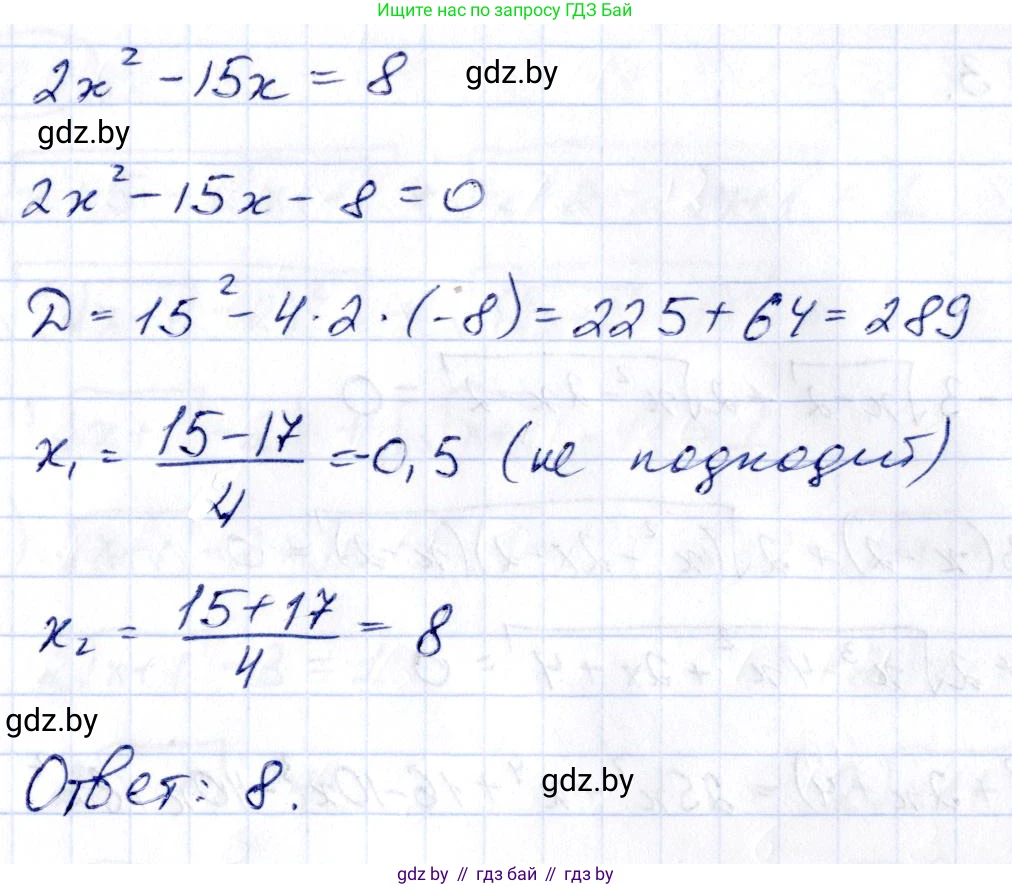 Ищите нас по запросу ГДЗ Бай
2x² - 15x = 8
gdz.by
gdz.by
2x² - 15x - 8 = 0
D = 15² - 4 · 2 · (-8) = 225 + 64 = 289
x₁ = (15-17)/4 = -0,5 (не подходит)
x₂ = (15+17)/4 = 8
gdz.by
Ответ: 8.
gdz.by
gdz.by // гдз бай // gdz.by